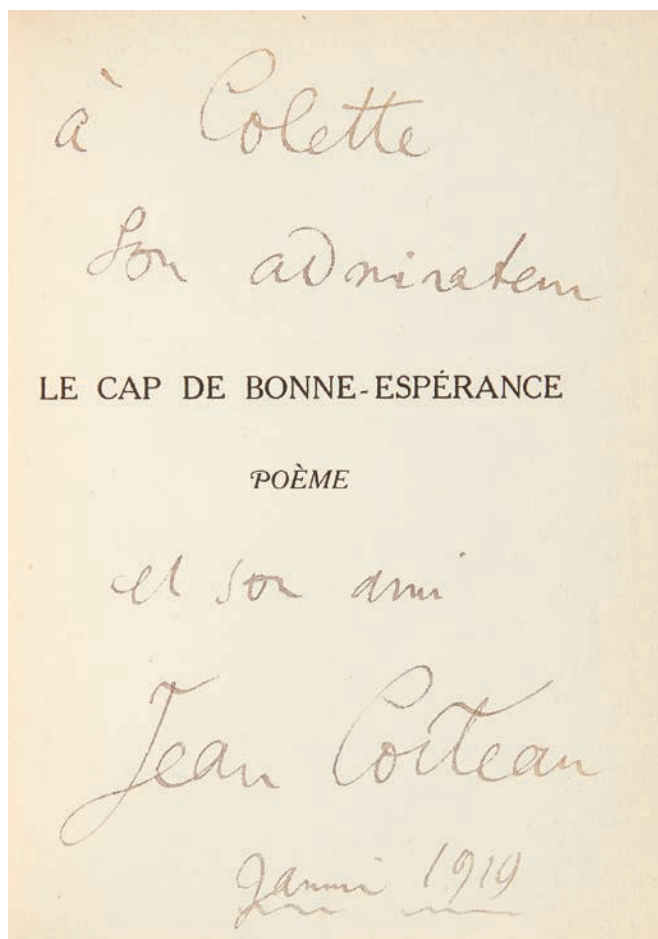 à Colette
son admirateur
LE CAP DE BONNE-ESPÉRANCE
POÈME
et son ami
Jean Cocteau
Janvier 1919